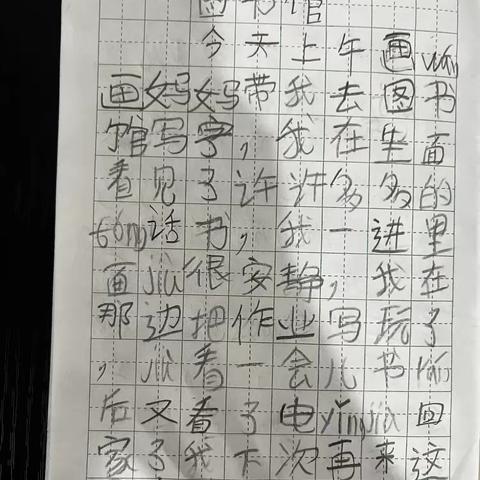 图书馆
今天上午画wán
画妈妈带我去图书
馆写字，我在里面
看见了许许多多的
tóng话书，我一进里
面jiù很安静，我在
那边把作业写玩了
，jiù看一会儿书rán
后又看了电yǐng jiù回
家了我下次再来这